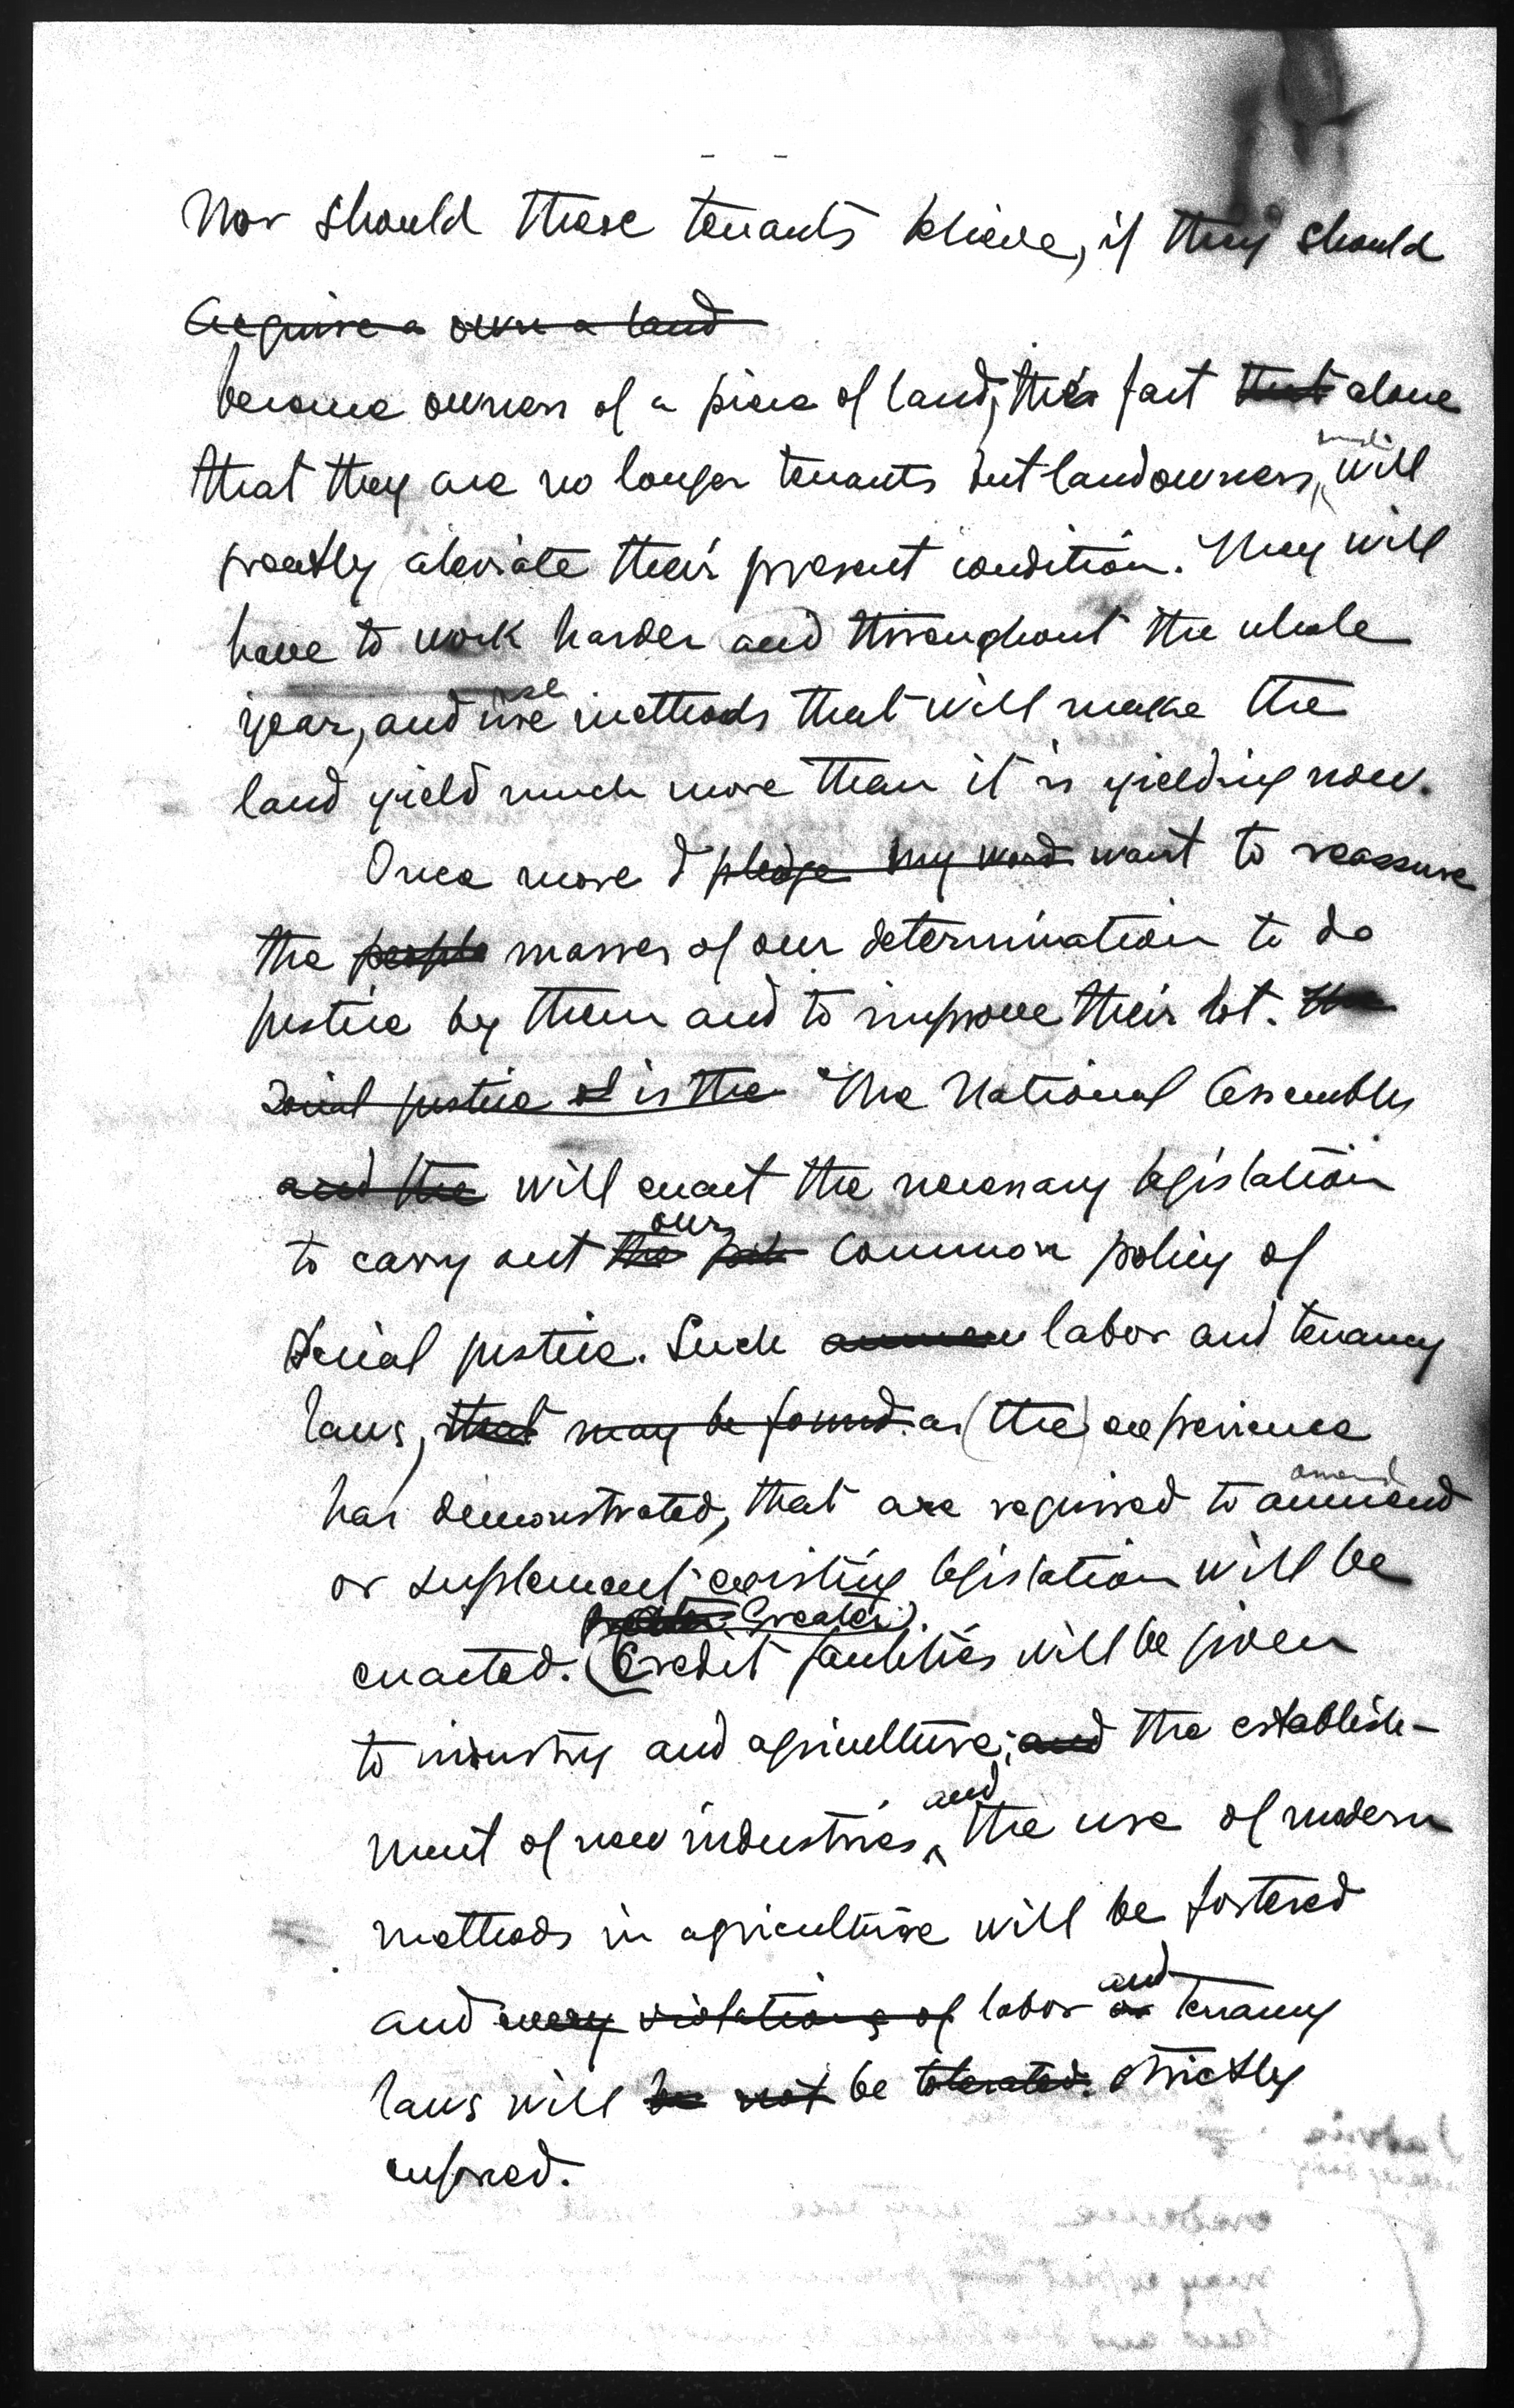 Nor should these tenants believe, if they should
acquire a own a land
become owners of a piece of land, this fact that alone
that they are no longer tenants but landowners, will
greatly aleviate their present condition. They will
have to work harder and throughout the whole
use
year, and use methods that will make the
land yield much more than it is yielding now.
Once more I pledge my word want to reassure
the people masses of our determination to do
justice by them and to improve their lot. The
Social justice is the The National Assembly
and the will enact the necessary legislation
our
to carry out the common policy of
Social justice. Such labor and tenancy
laws, that may be found as (the) experience
amend
has demonstrated, that are required to ammend
or suplement existing legislation will be
Greater
enacted. (Credit facilities will be given
to industry and agriculture; and the establish-
and
ment of new industries ^ the use of modern
methods in agriculture will be fostered
and
and every violations of labor or tenancy
laws will be not be tolerated. strictly
enforced.